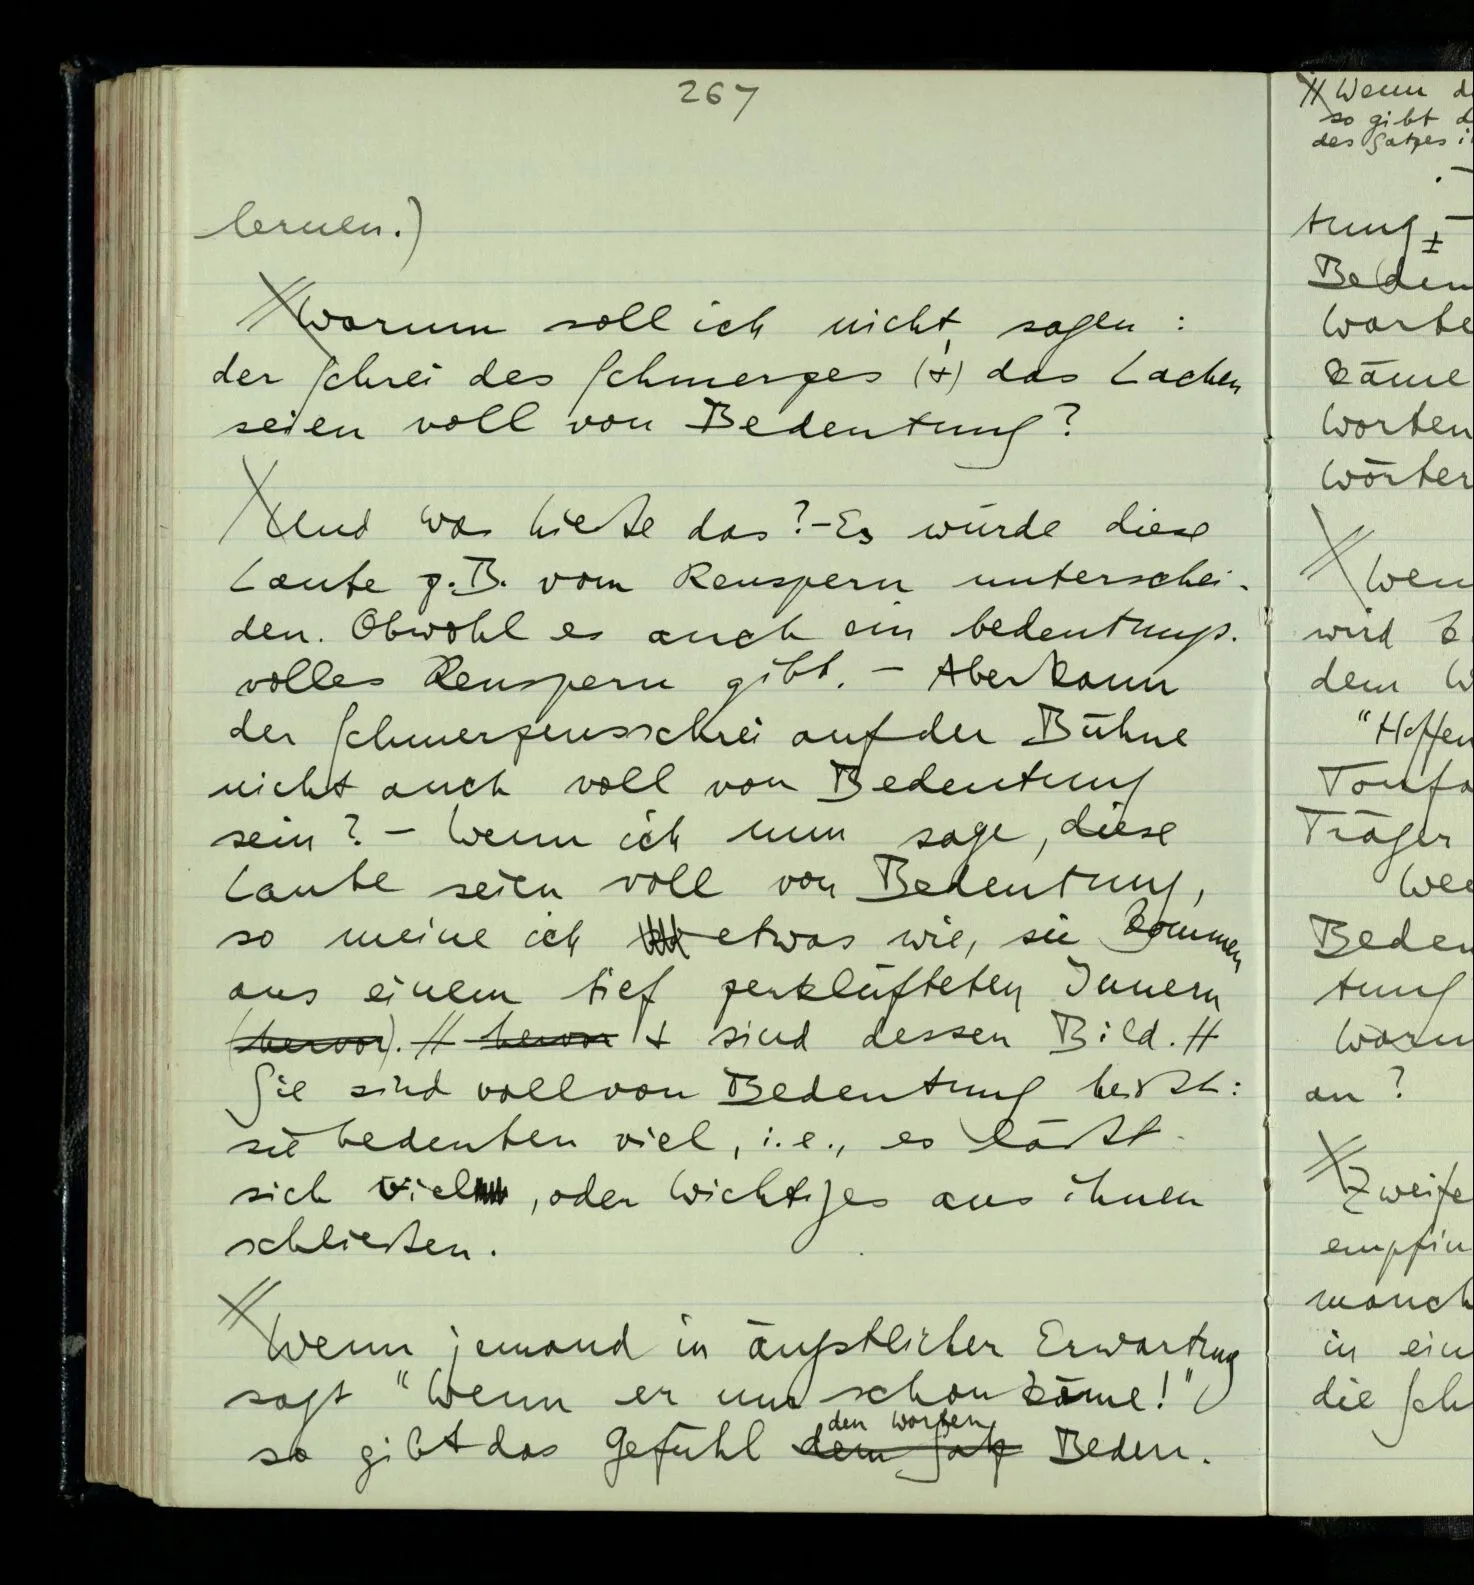 267
lernen.)
Warum soll ich nicht sagen :
der Schrei des Schmerzes (+) das Lachen
seien voll von Bedeutung?
Und was hieße das? – Es würde diese
Laute z.B. vom Reuspern unterschei-
den. Obwohl es auch ein bedeutungs-
volles Reuspern gibt. – Aber kann
der Schmerzensschrei auf der Bühne
nicht auch voll von Bedeutung
sein? – Wenn ich nun sage, diese
Laute seien voll von Bedeutung,
so meine ich etwas wie, sie kommen
aus einem tief zerklüfteten Innern
(hervor). // hervor + sind dessen Bild. //
Sie sind voll von Bedeutung heißt:
sie bedeuten viel, i.e., es läßt
sich viel, oder Wichtiges aus ihnen
schließen.
Wenn jemand in ängstlicher Erwartung
sagt "Wenn er nur schon käme!"
den Worten
so gibt das Gefühl dem Satz Bedeu-
// Wenn d
so gibt d
des Satzes i
tung, –
Bedeu
Worte
käme
Worten
Wörter
Wen
wird
dem W
"Hoffen
Tonfa
Träger
We
Bedeu
tung
Waru
an?
Zweife
empfin
manch
in ein
die Sch